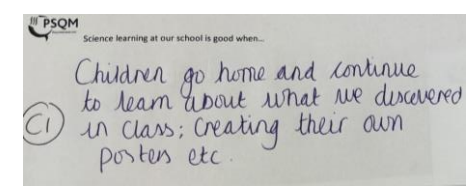 PSQM
Science learning at our school is good when...
Children go home and continue
to learn about what we discovered
C1 in class; creating their own
posters etc.